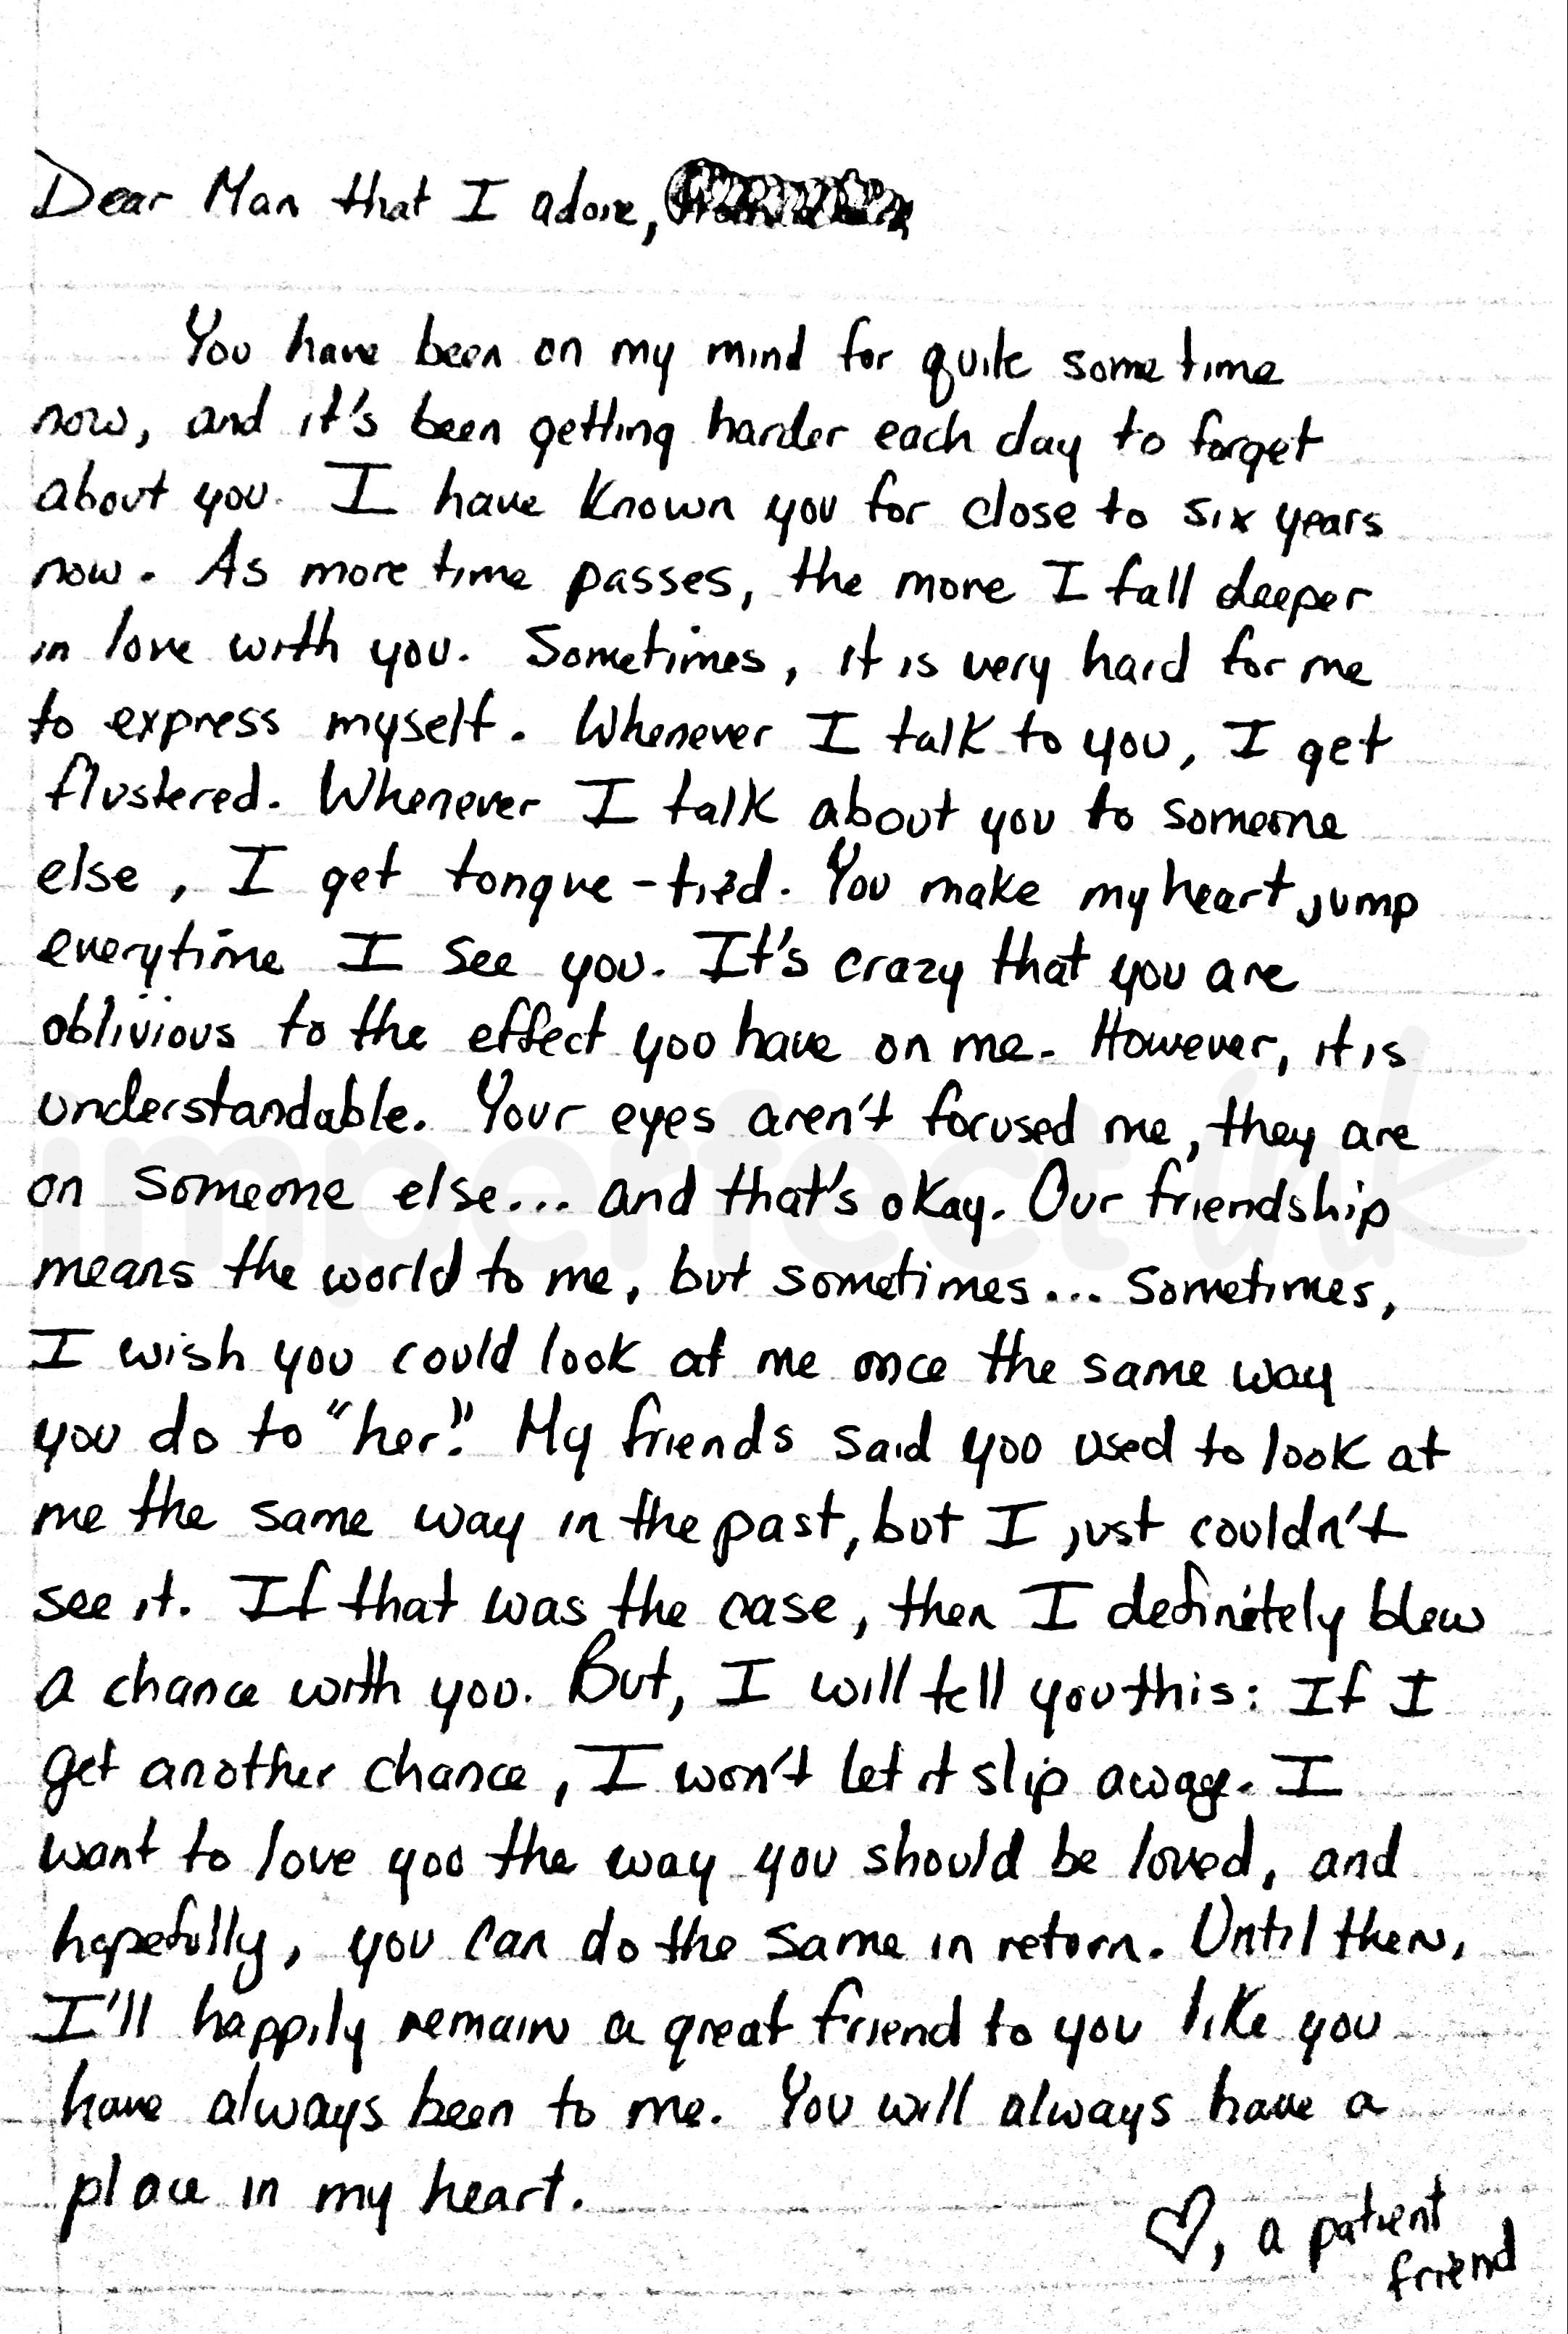 Dear Man that I adore,
You have been on my mind for quite some time
now, and it's been getting harder each day to forget
about you. I have known you for close to six years
now. As more time passes, the more I fall deeper
in love with you. Sometimes, it is very hard for me
to express myself. Whenever I talk to you, I get
flustered. Whenever I talk about you to someone
else, I get tongue-tied. You make my heart jump
everytime I see you. It's crazy that you are
oblivious to the effect you have on me. However, it is
understandable. Your eyes aren't focused me, they are
on someone else... and that's okay. Our friendship
means the world to me, but sometimes... Sometimes,
I wish you could look at me once the same way
you do to "her." My friends said you used to look at
me the same way in the past, but I just couldn't
see it. If that was the case, then I definitely blew
a chance with you. But, I will tell you this: If I
get another chance, I won't let it slip away. I
want to love you the way you should be loved, and
hopefully, you can do the same in return. Until then,
I'll happily remain a great friend to you like you
have always been to me. You will always have a
place in my heart.
♡, a patient
friend
imperfect ink